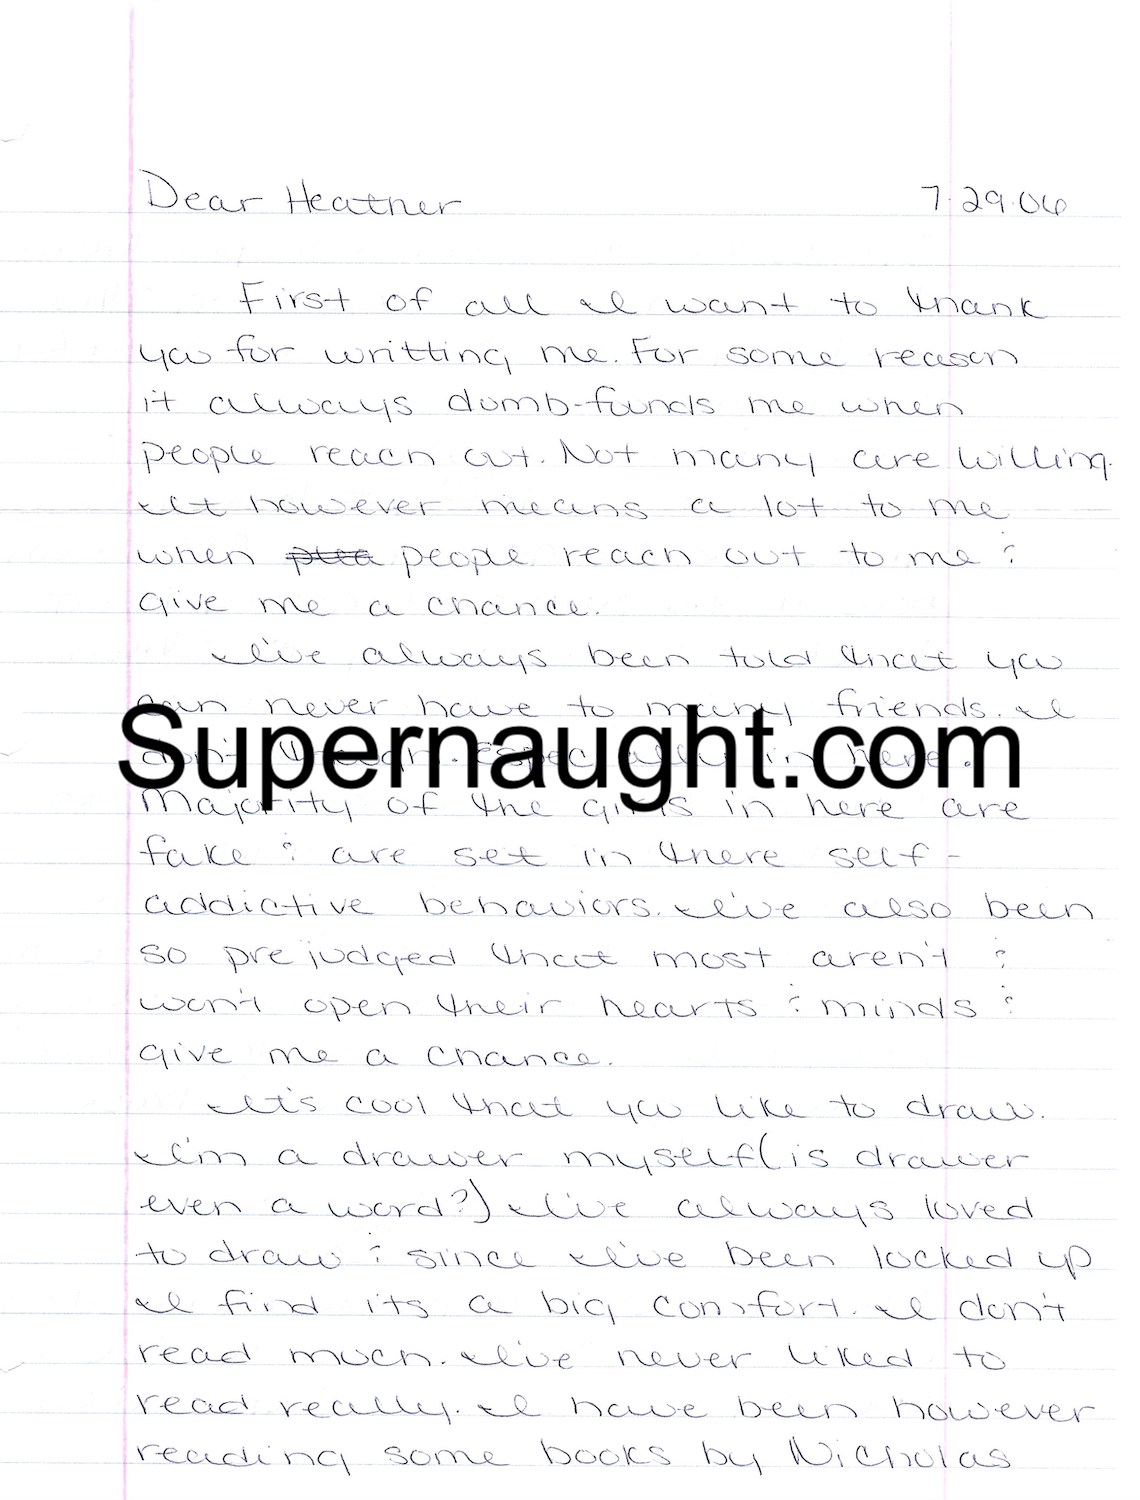 Dear Heather 7.29.06
First of all I want to thank
you for writting me. For some reason
it always dumb-founds me when
people reach out. Not many are willing.
It however means a lot to me
when people reach out to me &
give me a chance.
I've always been told that you
can never have to many friends. I
don't though. Especially in here.
Supernaught.com
Majority of the girls in here are
fake & are set in there self-
addictive behaviors. I've also been
so prejudged that most aren't &
won't open their hearts & minds &
give me a chance.
It's cool that you like to draw.
I'm a drawer myself (is drawer
even a word?) I've always loved
to draw & since I've been locked up
I find its a big comfort. I don't
read much. I've never liked to
read really. I have been however
reading some books by Nicholas